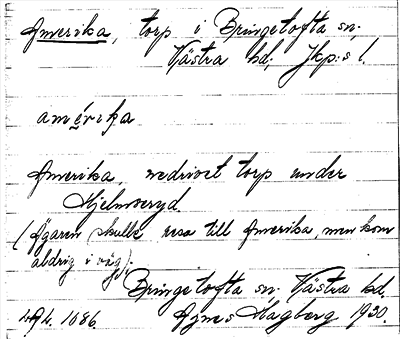 Amerika, torp i Bringetofta sn.
Västra hd. Jkp:s l.
amérika
Amerika, nedrivet torp under
Hjelmseryd.
(Ägaren skulle resa till Amerika, men kom
aldrig i väg).
Bringetofta sn. Västra hd.
Agnes Hagberg 1930.